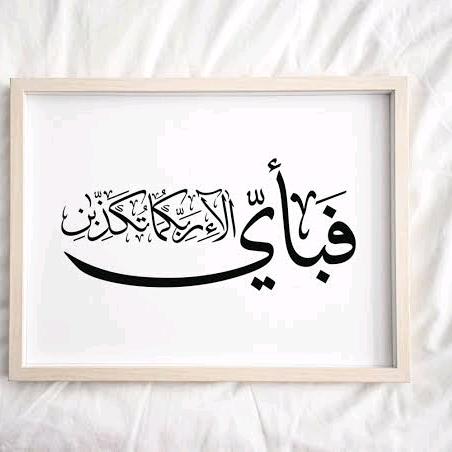 فَبَأَيِّ آلَآءِ رَبِّكُمَا تُكَذِّبَنِ